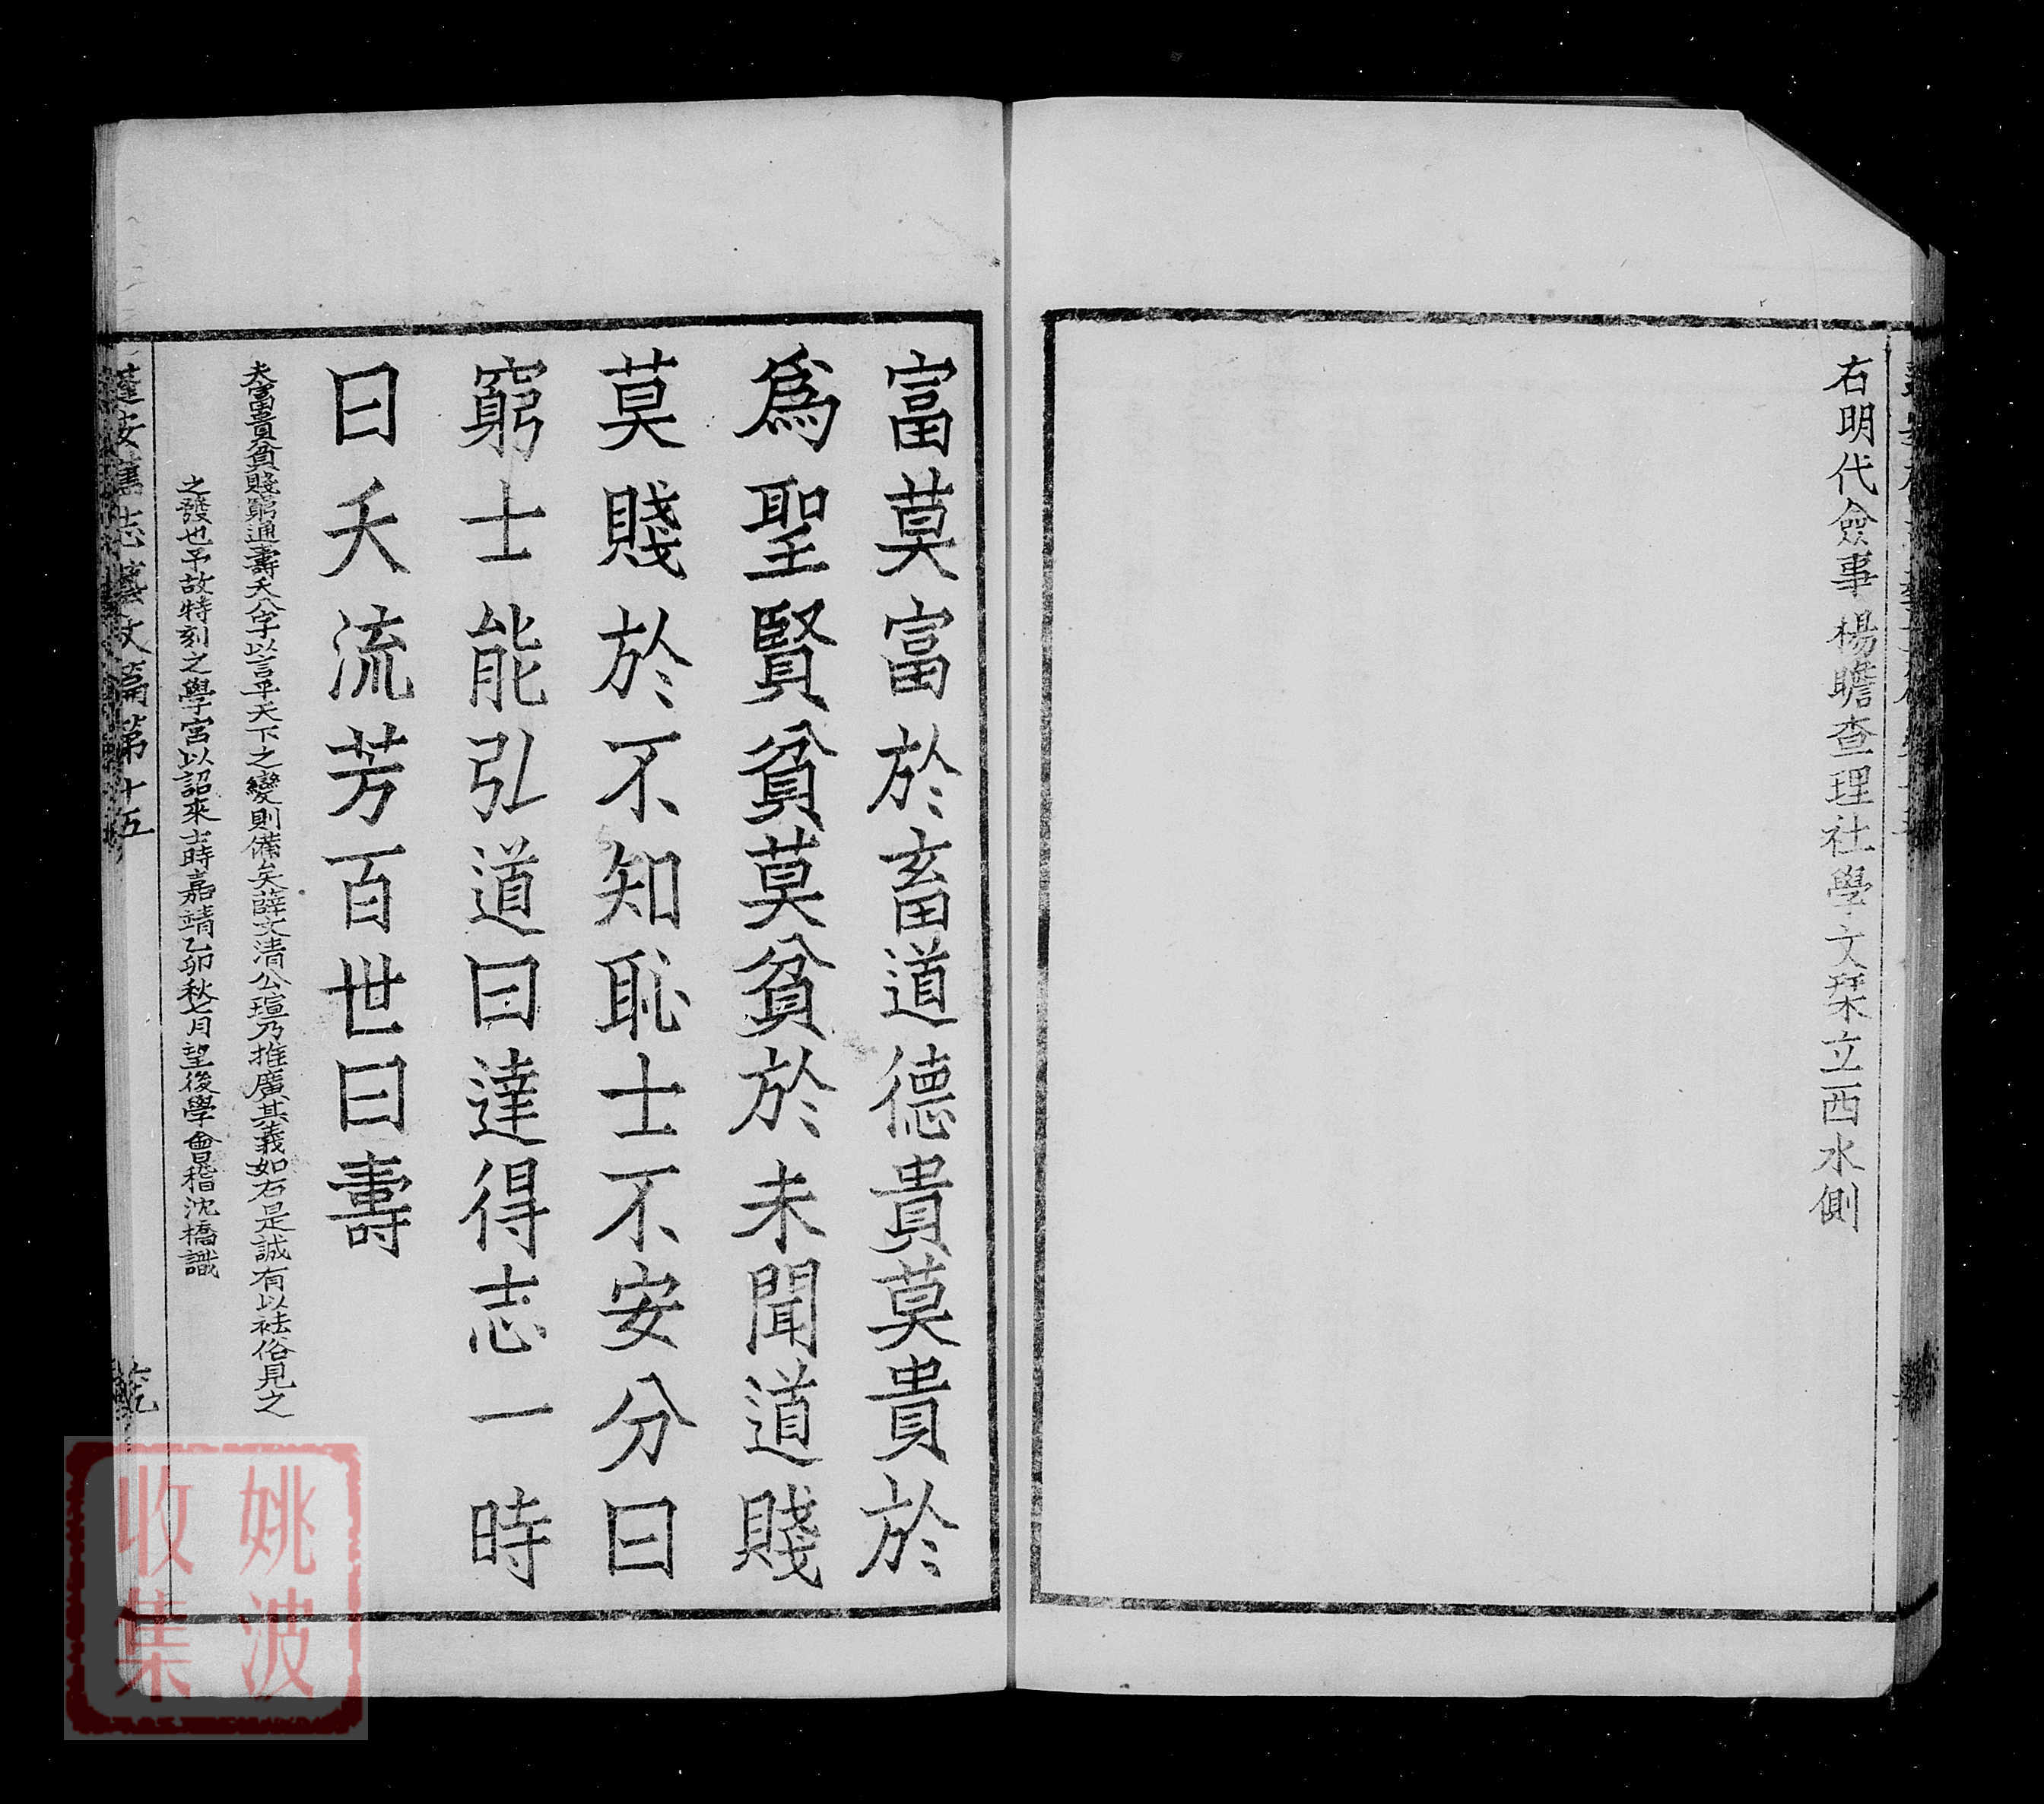 右明代僉事楊瞻查理社學文琹立西水側
富莫富於畜道德貴莫貴於
爲聖賢貧莫貧於未聞道賤
莫賤於不知恥士不安分曰
窮士能弘道曰達得志一時
曰夭流芳百世曰壽
夫富貴貧賤窮通壽夭八字以言乎天下之變則備矣薛文清公瑄乃推廣其義如右是誠有以袪俗見之
之發也予故特刻之學宮以詔來士時嘉靖乙卯秋七月望後學會稽沈橋識
蓬安舊志藝文篇第十五
姚波
收集